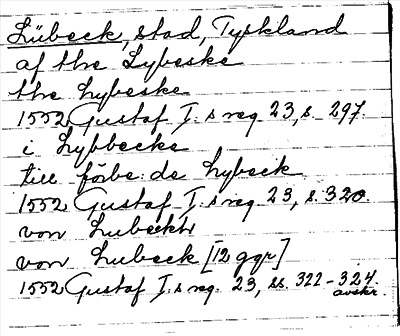 Lübeck, stad, Tyskland
af the Lybeske
the Lybeske
1552 Gustaf I:s reg 23, s. 297.
i Lybbecke
till förbe:de Lybeck
1552 Gustaf I:s reg 23, s. 320.
von Lubeckh
von Lubeck [12 ggr]
1552 Gustaf I:s reg. 23, ss. 322-324.
avskr.